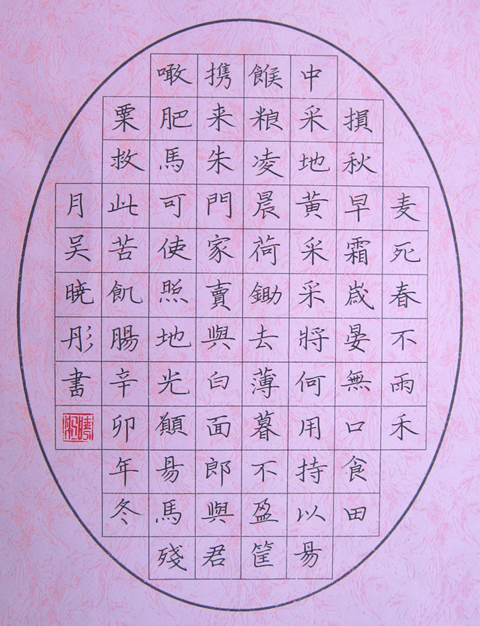 麦死春不雨禾
損秋早霜歲晏無口食田
中采地黄采采將何用持以昜
餱粮凌晨荷鋤去薄暮不盈筐
携来朱門家賣與白面郎與君
噉肥馬可使照地光願昜馬殘
粟救此苦飢腸辛卯年冬
月吴暁彤書